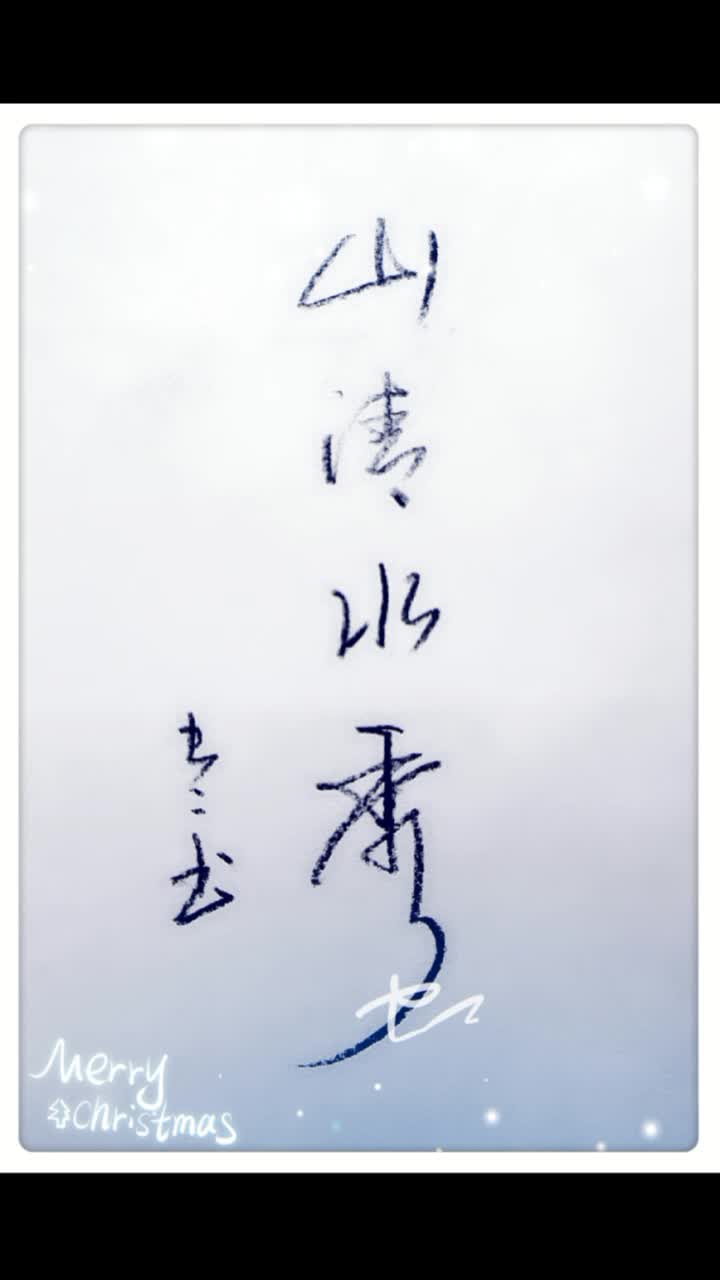 山清水秀
书
Merry
Christmas